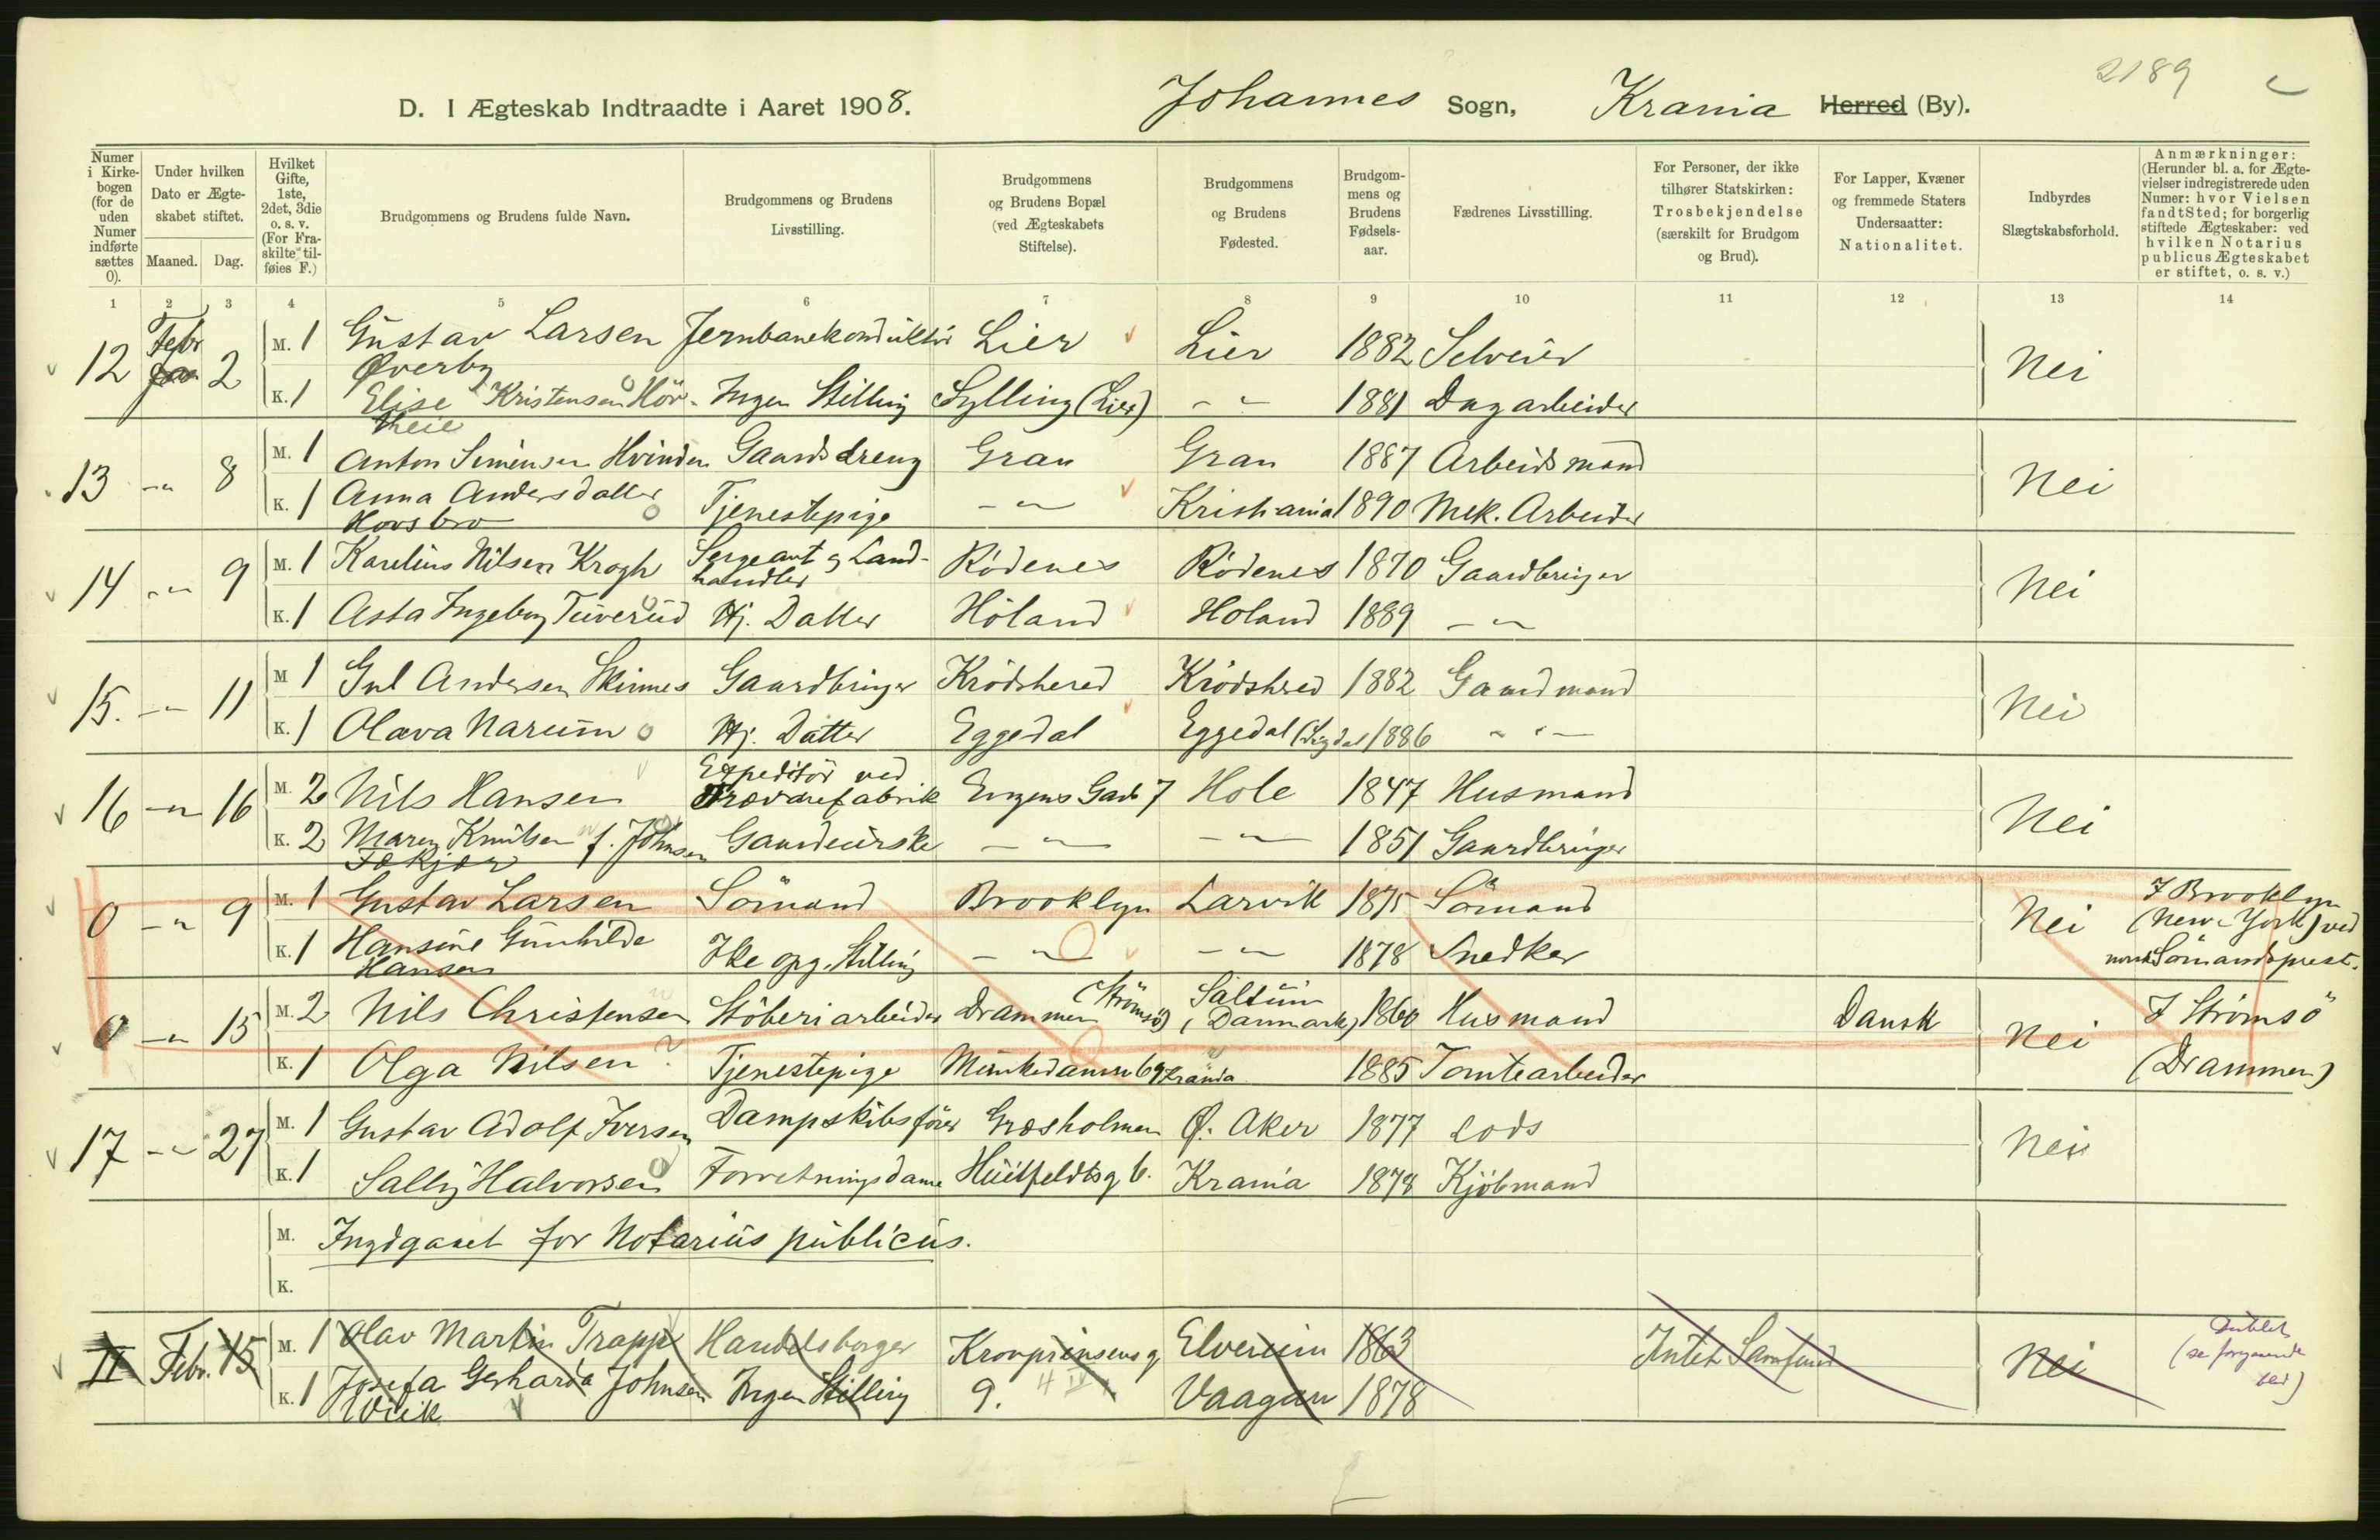 2189
D. I Ægteskab Indtraadte i Aaret 1908. Johannes Sogn, Krania Herred (By).
Numer i Kirkebogen (for de uden Numer indførte sættes 0).
Under hvilken Dato er Ægteskabet stiftet.
Maaned. Dag.
Hvilket Gifte, 1ste, 2det, 3die o. s. v. (For Fraskilte tilføies F.)
Brudgommens og Brudens fulde Navn.
Brudgommens og Brudens Livsstilling.
Brudgommens og Brudens Bopæl (ved Ægteskabets Stiftelse).
Brudgommens og Brudens Fødested.
Brudgommens og Brudens Fødselsaar.
Fædrenes Livsstilling.
For Personer, der ikke tilhører Statskirken: Trosbekjendelse (særskilt for Brudgom og Brud).
For Lapper, Kvæner og fremmede Staters Undersaatter: Nationalitet.
Indbyrdes Slægtskabsforhold.
Anmærkninger: (Herunder bl. a. for Ægtevielser indregistrerede uden Numer: hvor Vielsen fandt Sted; for borgerlig stiftede Ægteskaber: ved hvilken Notarius publicus Ægteskabet er stiftet, o. s. v.)
1 2 3 4 5 6 7 8 9 10 11 12 13 14
12 Febr 2 M. 1 Gustav Larsen Øverby Jernbanekonduktör Lier Lier 1882 Selveier Nei
K. 1 Elise Kristensen Hör- Ingen Stilling Sylling (Lier) - " - 1881 Dagarbeider
13 - " 8 M. 1 Anton Simensen Hvinden Gaardsdreng Gran Gran 1887 Arbeidsmand Nei
K. 1 Anna Andersdatter Hovsbro Tjenestepige - " - Kristiania 1890 Mek. Arbeider
14 - " - 9 M. 1 Karelius Nilsen Krogh Sergeant og Landhandler Rödenes Rödenes 1870 Gaardbruger Nei
K. 1 Asta Ingeborg Tuverud Hj. Datter Höland Höland 1889 - " -
15. - " - 11 M 1 Gul Andersen Skinnes Gaardbruger Krödshered Krödshred 1882 Gaardmand Nei
K. 1 Olava Narum Hj. Datter Eggedal Eggedal (Sigdal) 1886 - " -
16 - " 16 M. 2 Nils Hansen Expeditör ved Trævarefabrik Eugens Gade 7 Hole 1847 Husmand Nei
K. 2 Maren Knutsen f. Johnsen Gaardeierske - " - - " - 1851 Gaardbruger
0 - " 9 M. 1 Gustav Larsen Sömand Brooklyn Larvik 1875 Sömand Nei I Brooklyn (New-York) ved norsk Sömandsprest.
K. 1 Hansine Gunhilde Hansen Ike opg. Stilling - " - - " - 1878 Snedker
0 - " 15 M. 2 Nils Christensen Stöberiarbeider Drammen (Strömsö) Saltum (Danmark) 1860 Husmand Dansk Nei I Strömsö (Drammen)
K. 1 Olga Nilsen ? Tjenestepige Munkedamsv 69 Krania 1885 Tomtearbeider
17 - " 27 M. 1 Gustav Adolf Iversen Dampskibsförer Græsholmen Ø. Aker 1877 Lods Nei
K. 1 Sally Halvorsen Forretningsdame Huitfeldtsg 6. Krania 1878 Kjöbmand
M. Indgaaet for Notarius publicus.
K.
II Febr. 15 M. 1 Olav Martin Trapp Handelsborger Kronprinsensg 9. Elverum 1863 Intet Samfund Nei Dublet (se foregaaende led)
K. 1 Josefa Gerharda Johnsen Wiik Ingen Stilling Vaagan 1878